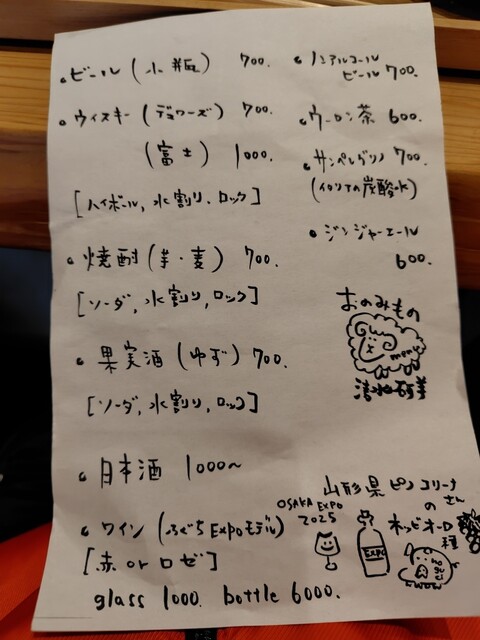 ・ビール (小瓶) 700.
・ウィスキー (デュワーズ) 700.
(富士) 1000.
[ハイボール, 水割り, ロック]
・焼酎 (芋・麦) 700.
[ソーダ, 水割り, ロック]
・果実酒 (ゆず) 700.
[ソーダ, 水割り, ロック]
・日本酒 1000~
・ワイン (ふぐち Expoモデル)
[赤 or ロゼ]
glass 1000. bottle 6000.
・ノンアルコール
ビール 700.
・ウーロン茶 600.
・サンペレグリノ 700.
(イタリアの炭酸水)
・ジンジャーエール
600.
おのみもの
OSAKA EXPO
2025
山形県 ピノコリーナ
さん
の
ネッビオーロ
種
EXPO